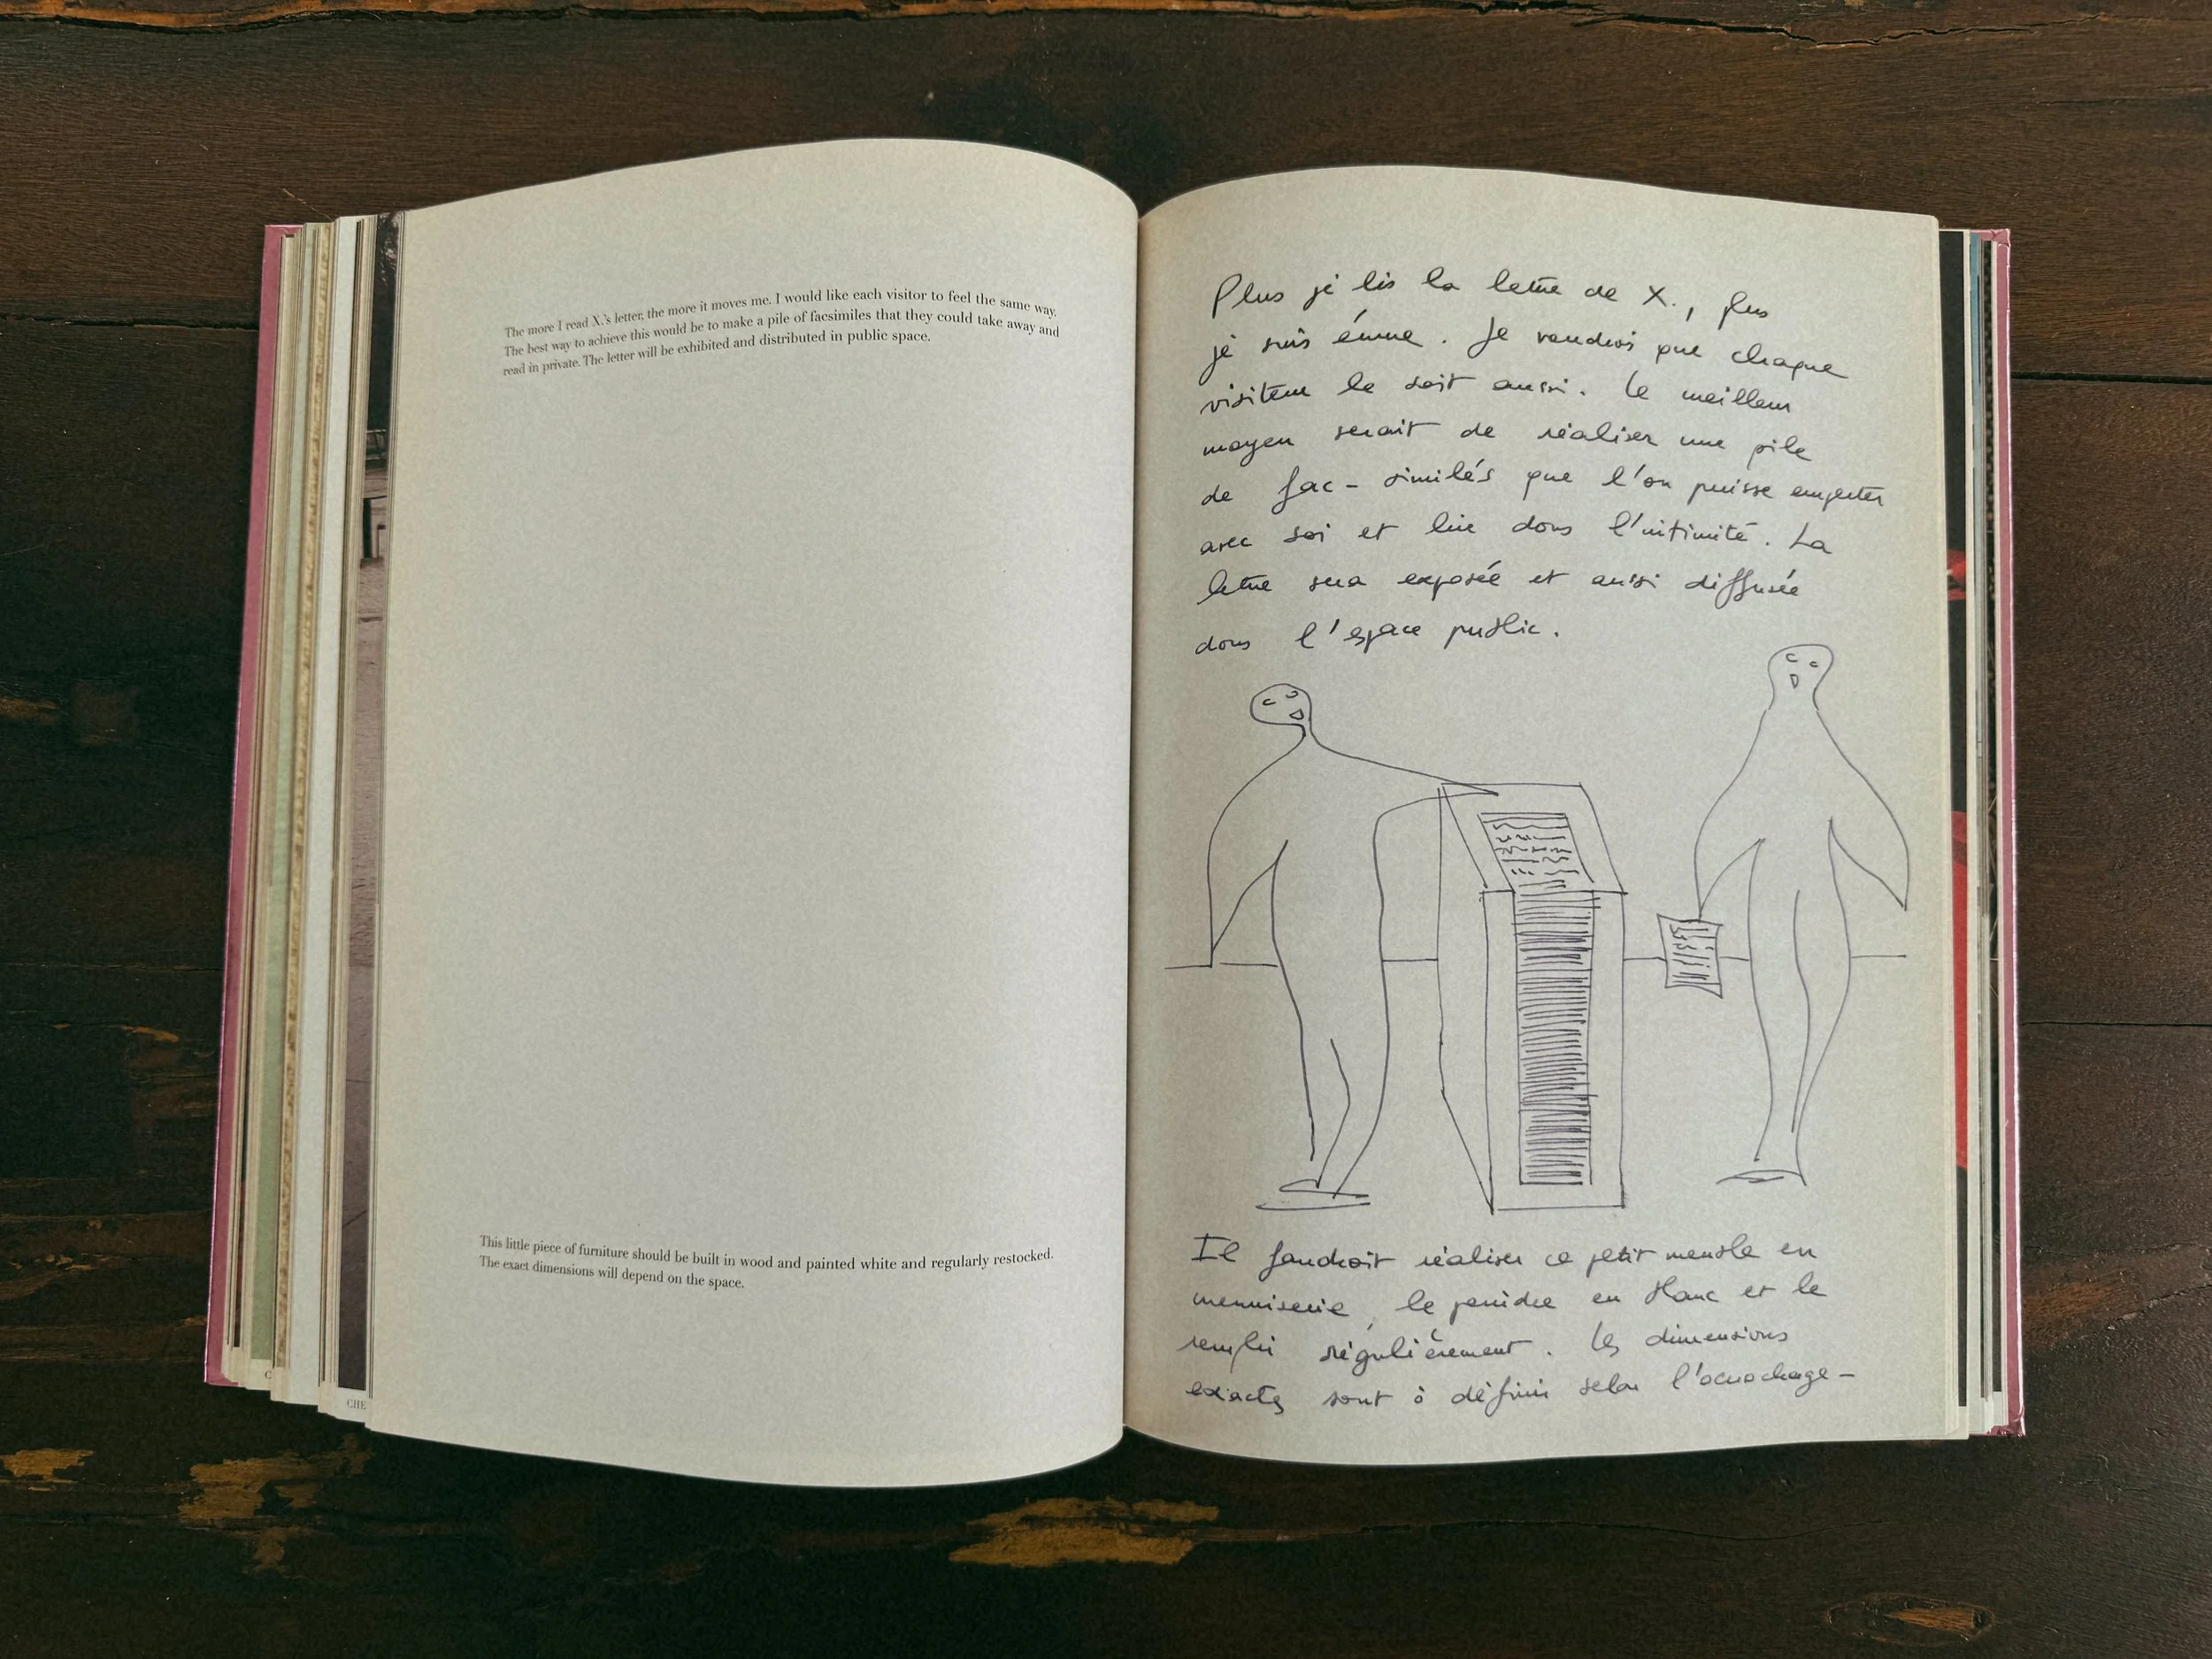 The more I read X.'s letter, the more it moves me. I would like each visitor to feel the same way.
The best way to achieve this would be to make a pile of facsimiles that they could take away and
read in private. The letter will be exhibited and distributed in public space.
This little piece of furniture should be built in wood and painted white and regularly restocked.
The exact dimensions will depend on the space.
CHE
Plus je lis la lettre de X., plus
je suis émue. Je voudrais que chaque
visiteur le soit aussi. Le meilleur
moyen serait de réaliser une pile
de fac-similés que l'on puisse emporter
avec soi et lire dans l'intimité. La
lettre sera exposée et aussi diffusée
dans l'espace public.
Il faudrait réaliser ce petit meuble en
menuiserie, le peindre en blanc et le
remplir régulièrement. Les dimensions
exactes sont à définir selon l'accrochage-